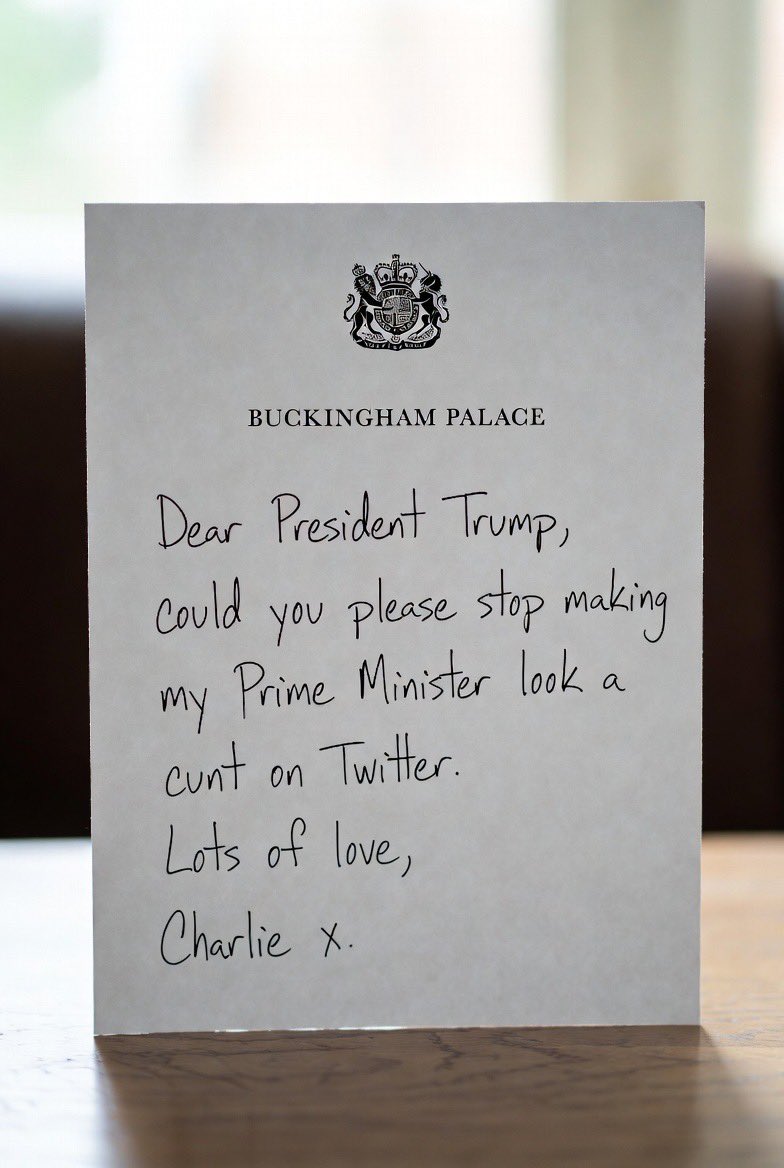 BUCKINGHAM PALACE
Dear President Trump,
could you please stop making
my Prime Minister look a
cunt on Twitter.
Lots of love,
Charlie x.